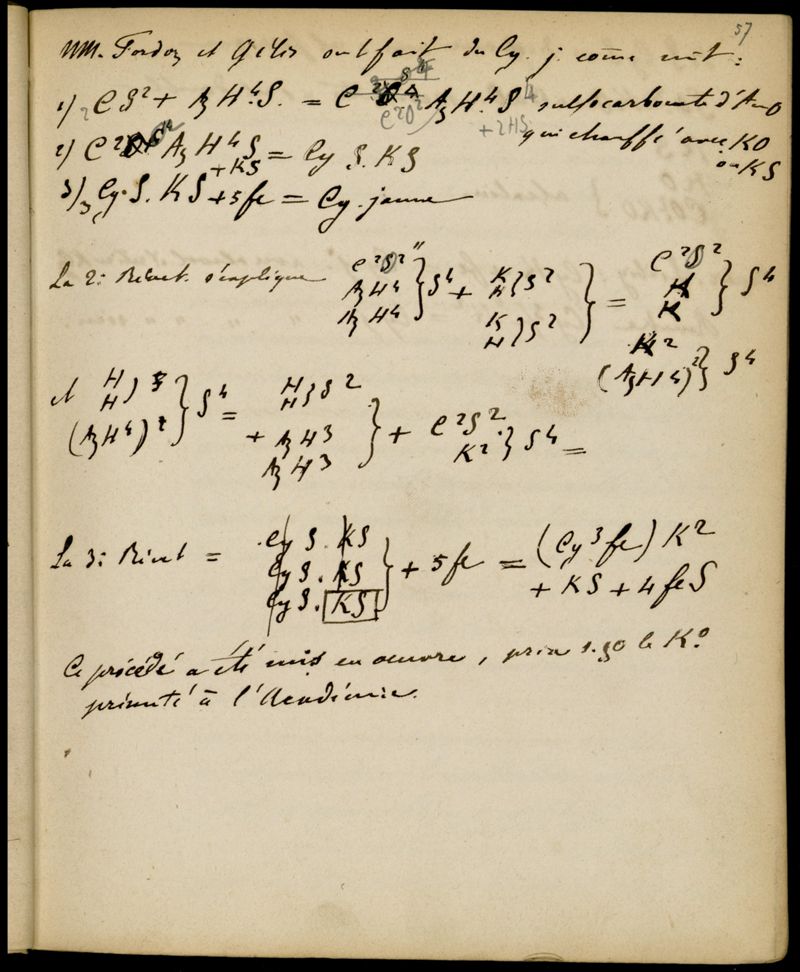 57
MM. Fordoz et Gélis ont fait du Cy. j. come suit:
1) 2CS² + AzH⁴S. = C AzH⁴.S⁴ sulfocarbonate d'AmO
C²O² + 2HS qui chauffé avec KO
ou KS
2) C² AzH⁴S + KS = Cy S. KS
3) 3CyS. KS + 5fe = Cy. jaune
La 2: Réact. s'explique C²S²" AzH⁴ AzH⁴ } S⁴ + K H } S² K H } S² } = C²S² H K } S⁴
K² (AzH⁴)² } S⁴
et H H } (AzH⁴)² } S⁴ = H H } S² + AzH³ AzH³ } + C²S² K² } S⁴ =
La 3: Réact = CyS. KS
CyS. KS } + 5fe = (Cy³fe) K²
CyS. KS + KS + 4feS
Ce procédé a été mis en œuvre, prix 1.30 le K.º
présenté à l'Académie.